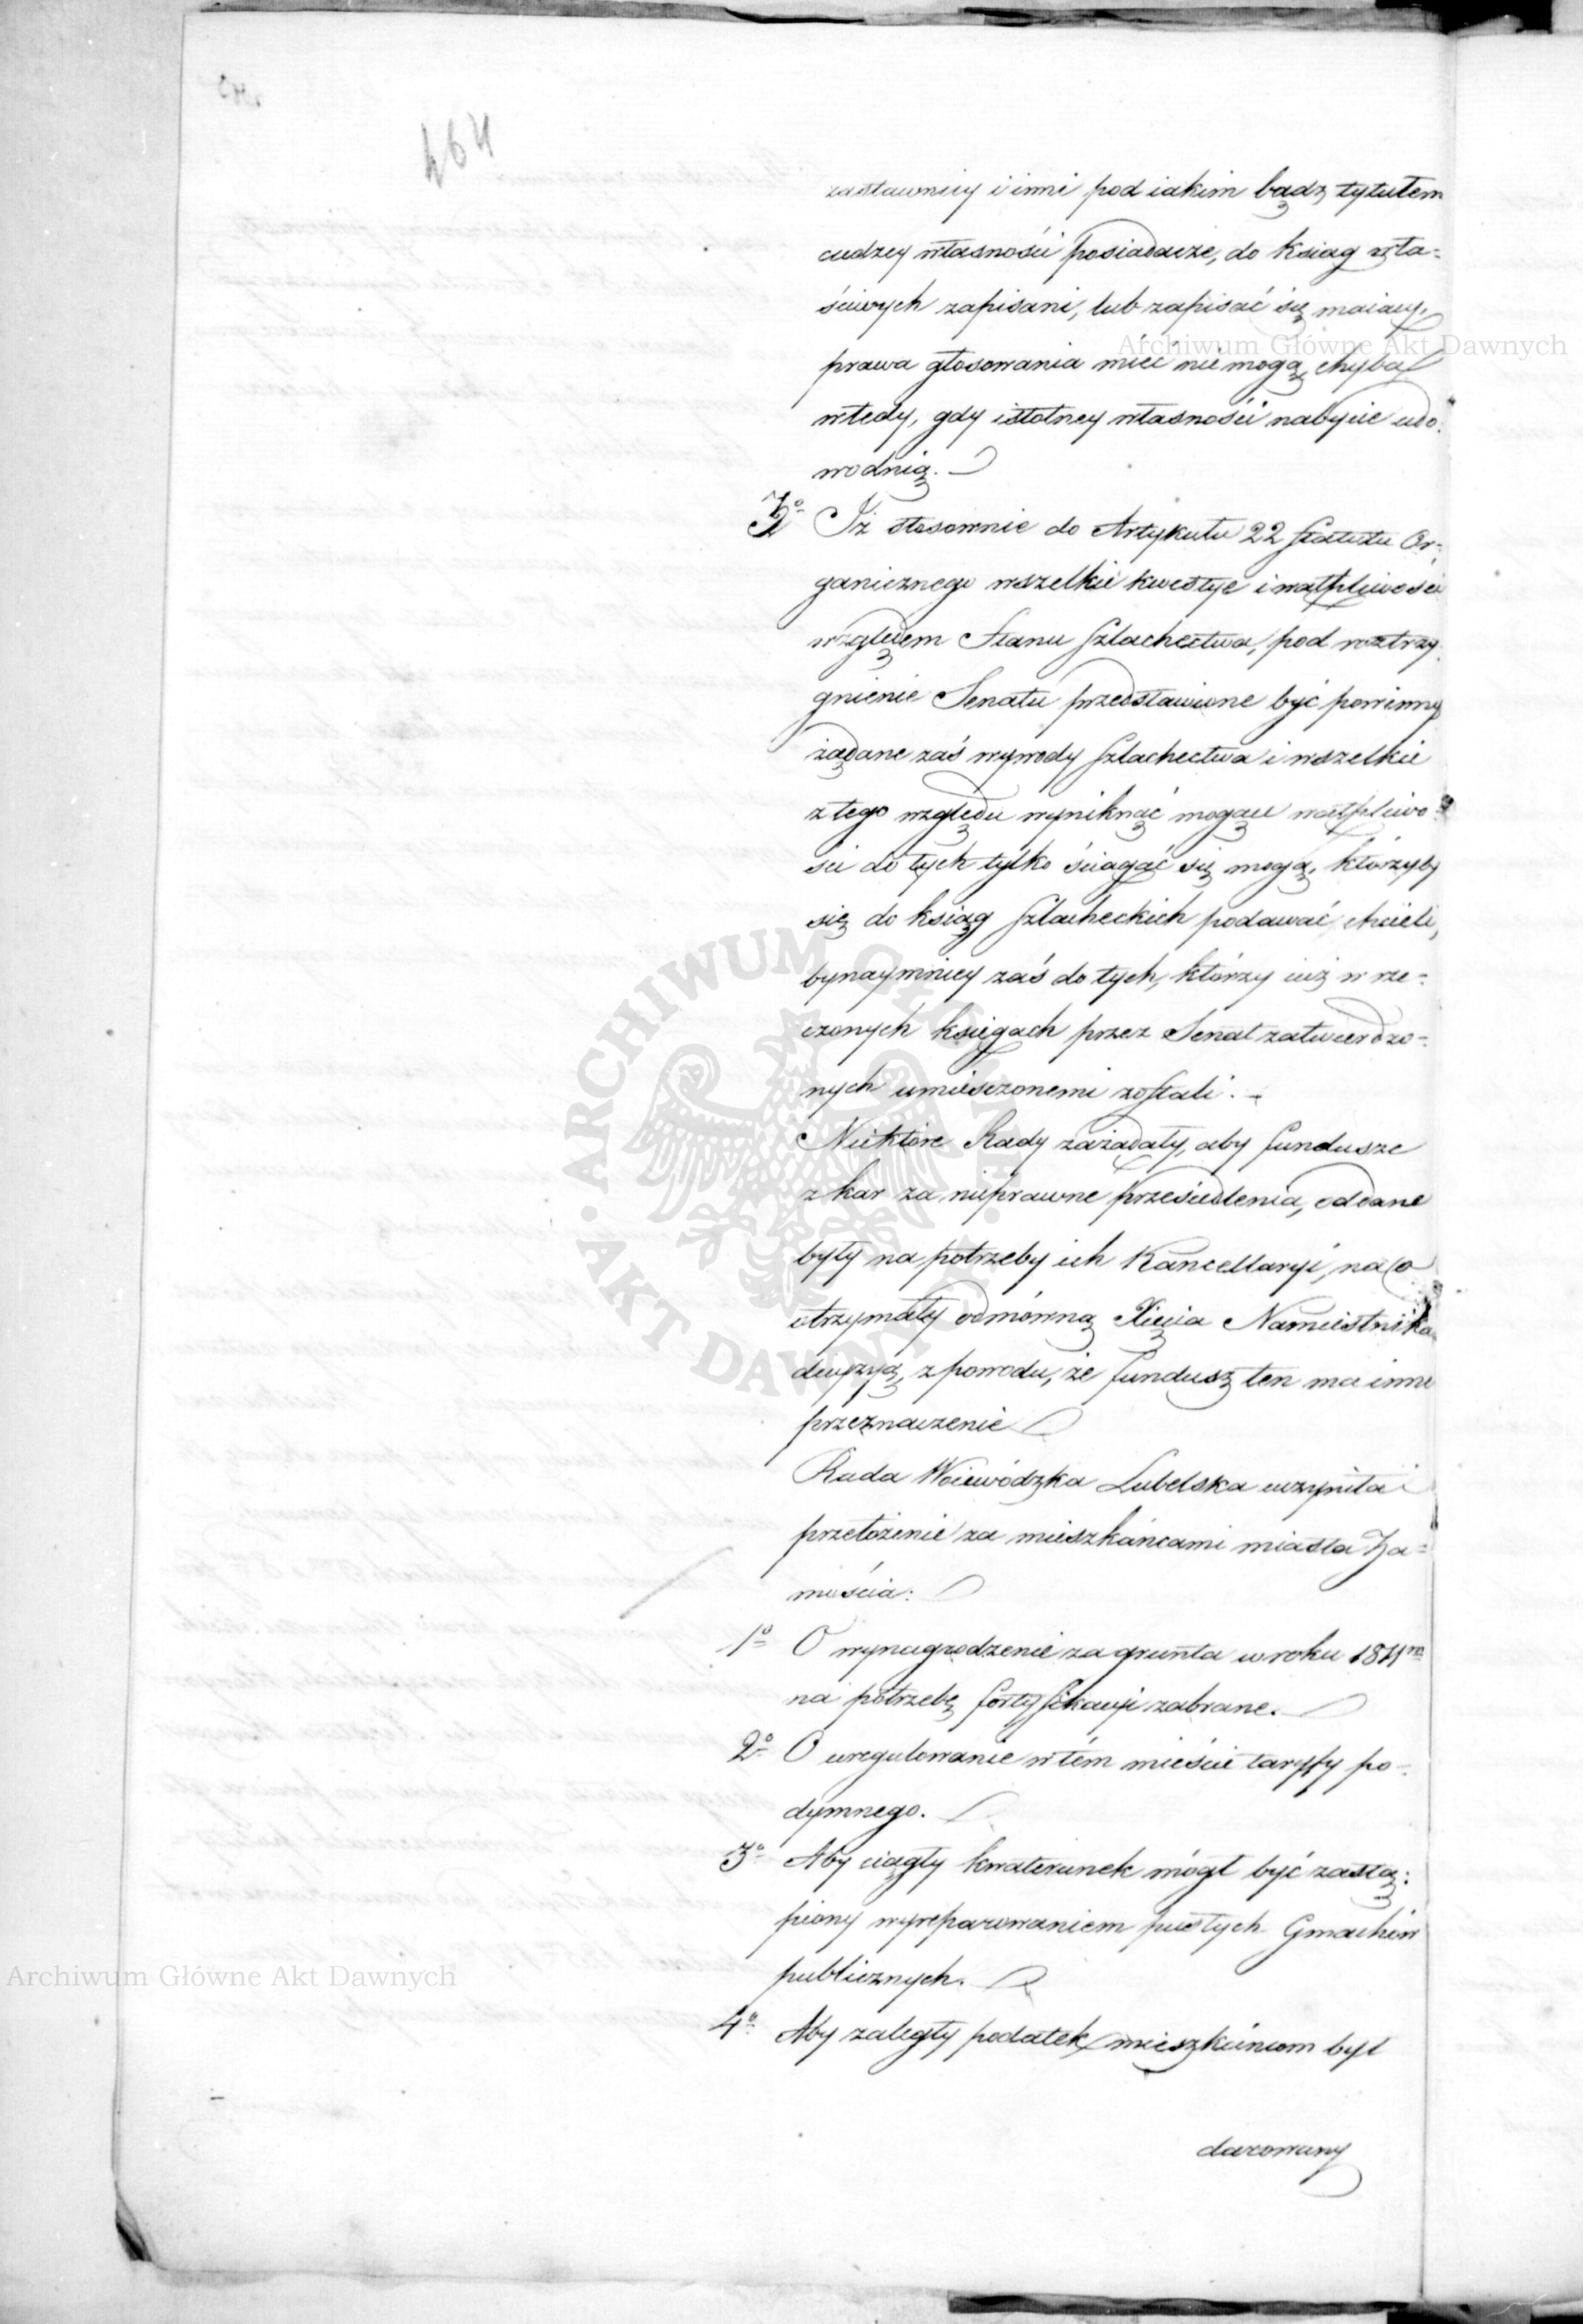 464
zastawnicy i inni pod iakim bądź tytułem
cudzey własności posiadacze, do ksiąg wła-
ściwych zapisani, lub zapisać się maiący,
Archiwum Główne Akt Dawnych
prawa głosowania mieć nie mogą, chyba
wtedy, gdy istotney własności nabycie udo-
wodnią.
3º Iż stosownie do Artykułu 22 Statutu Or-
ganicznego wszelkie kwestye i wątpliwości
względem Stanu Szlachectwa, pod roztrzy-
gnienie Senatu przedstawione być powinny
żądane zaś wywody Szlachectwa i wszelkie
z tego względu wyniknąć mogące wątpliwo-
ści do tych tylko ściągać się mogą, którzyby
się do ksiąg Szlacheckich podawać chcieli,
bynaymniey zaś do tych, którzy iuż w rze-
czonych księgach przez Senat zatwierdzo-
nych umieszczonemi zostali.
Niektóre Rady zażądały, aby fundusze
z kar za nieprawne przesiedlenia, oddane
były na potrzeby ich Kancellaryi, na co
otrzymały odmówną Xięcia Namiestnika
decyzyą, z powodu, że fundusz ten ma inne
przeznaczenie
Rada Woiewódzka Lubelska uczyniła
przełożenie za mieszkańcami miasta Za-
mościa:
1º O wynagrodzenie za grunta w roku 1811ro
na potrzebę fortyfikacyi zabrane.
2º O uregulowanie w tém mieście taryffy po-
dymnego.
3º Aby ciągły kwaterunek mógł być zastą-
piony wyreparowaniem pustych Gmachów
publicznych.
Archiwum Główne Akt Dawnych
4º Aby zaległy podatek mieszkańcom był
darowany
ARCHIWUM GŁÓWNE · AKT DAWNYCH ·